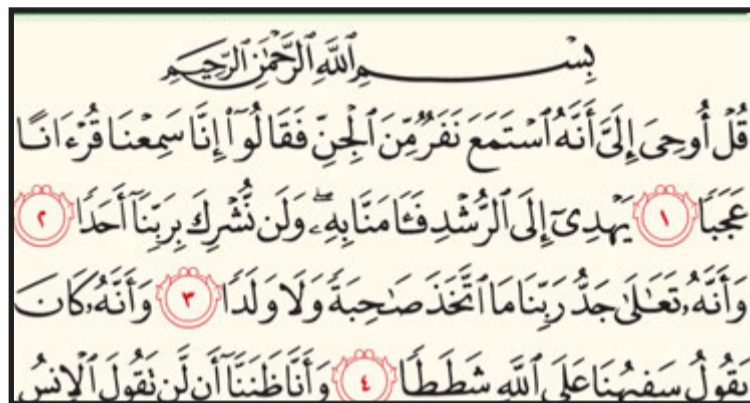 بِسْمِ ٱللَّهِ ٱلرَّحْمَٰنِ ٱلرَّحِيمِ
قُلْ أُوحِىَ إِلَىَّ أَنَّهُ ٱسْتَمَعَ نَفَرٌ مِّنَ ٱلْجِنِّ فَقَالُوٓا۟ إِنَّا سَمِعْنَا قُرْءَانًا
عَجَبًا ١ يَهْدِىٓ إِلَى ٱلرُّشْدِ فَـَٔامَنَّا بِهِۦ ۖ وَلَن نُّشْرِكَ بِرَبِّنَآ أَحَدًا ٢
وَأَنَّهُۥ تَعَٰلَىٰ جَدُّ رَبِّنَا مَا ٱتَّخَذَ صَٰحِبَةً وَلَا وَلَدًا ٣ وَأَنَّهُۥ كَانَ
يَقُولُ سَفِيهُنَا عَلَى ٱللَّهِ شَطَطًا ٤ وَأَنَّا ظَنَنَّآ أَن لَّن تَقُولَ ٱلْإِنسُ